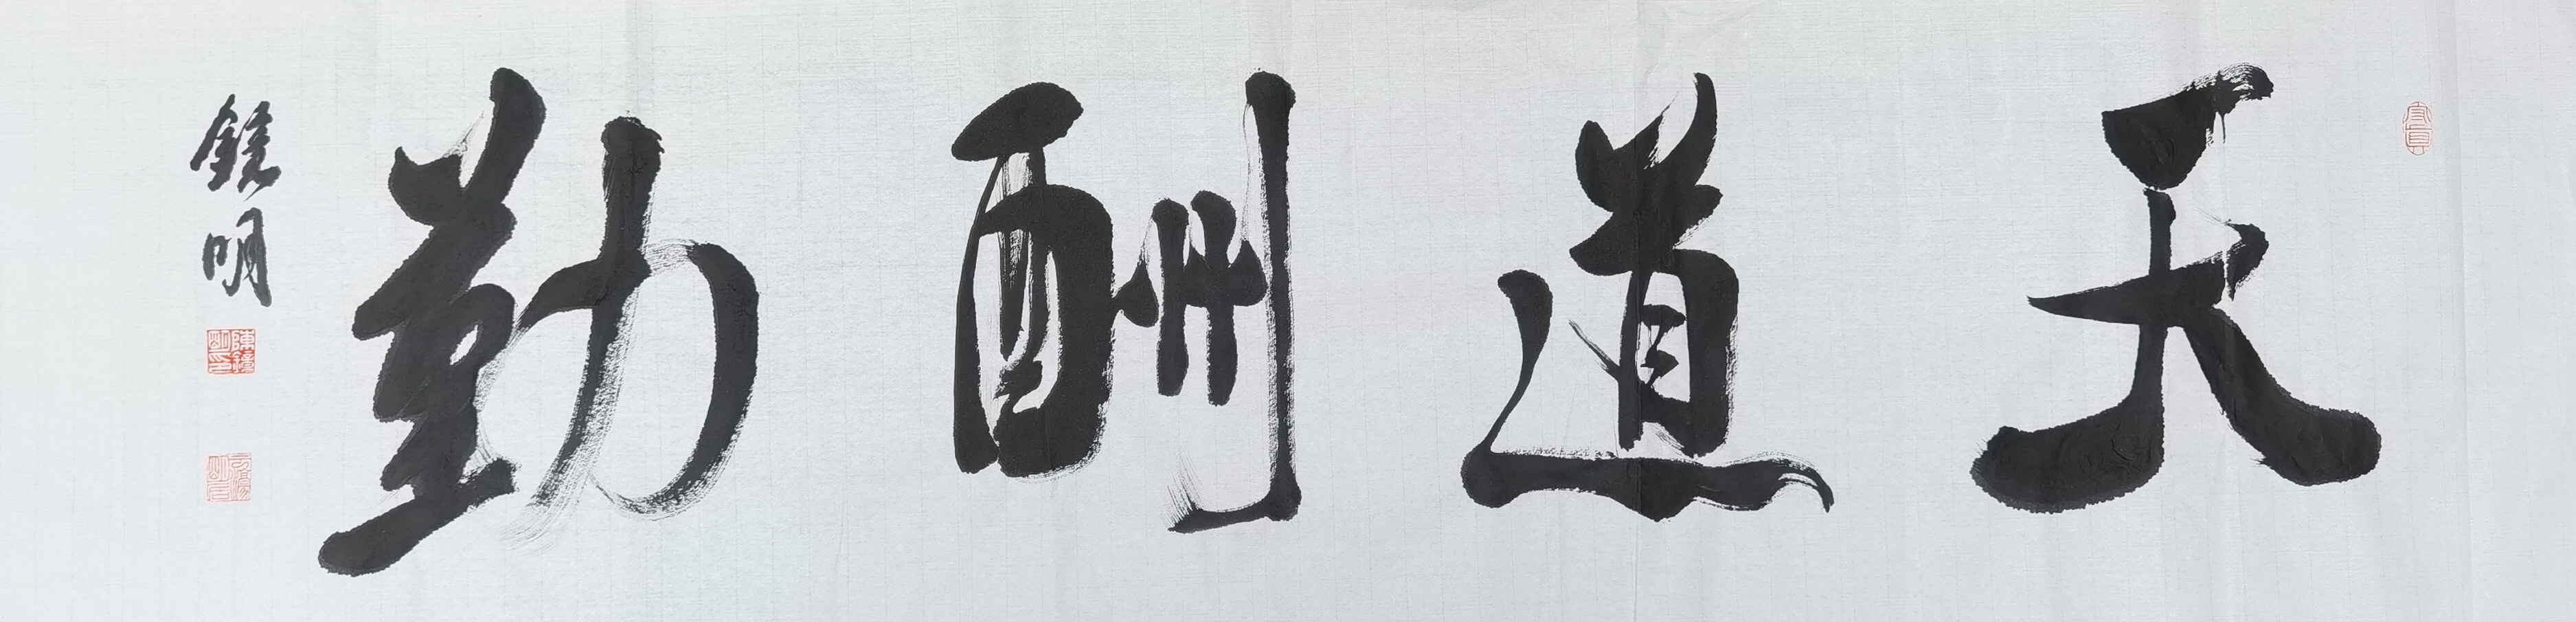 天道酬勤
鏡明
陳鏡明印